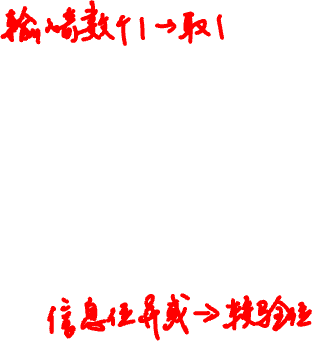 输奇数个1→取1
信息位异或→校验位